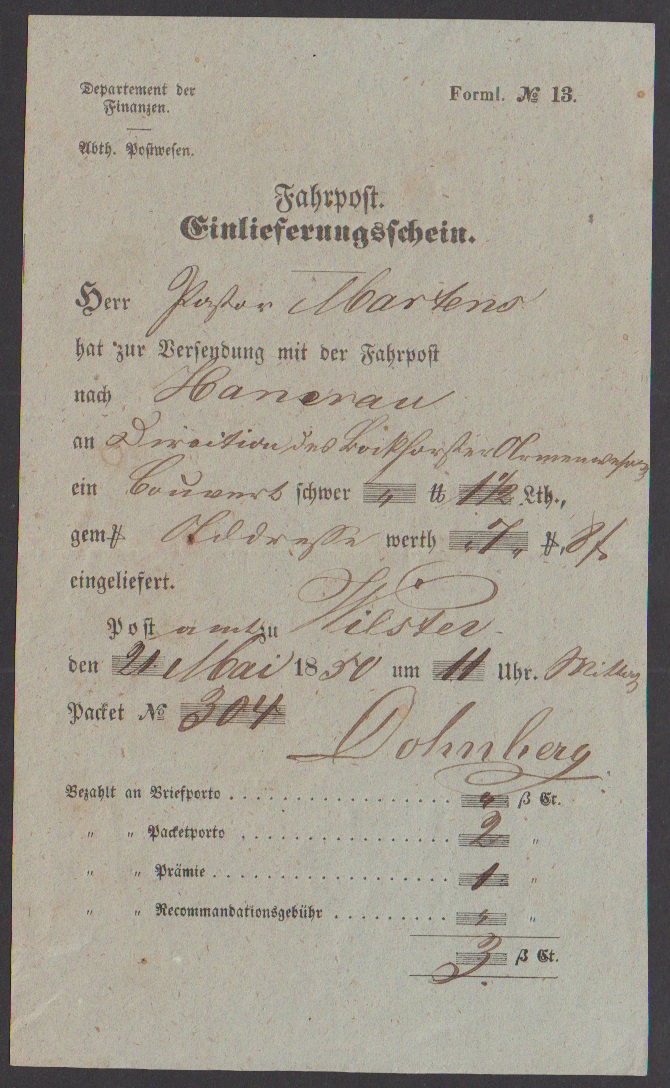 Departement der
Finanzen.
Abth. Postwesen.
Forml. № 13.
Fahrpost.
Einlieferungsschein.
Herr Pastor Martens
hat zur Versendung mit der Fahrpost
nach Hanerau
an Direction des Bockhorster Armenwesens
ein Couvert schwer " ℔ 1½ Lth.,
gem. Addresse werth 7
eingeliefert.
Post amt zu Wilster
den 21 Mai 1850 um 11 Uhr. Mittag
Packet № 304
Dohnberg
Bezahlt an Briefporto . . . . . . . . . . . . . . . . . . . " ß Ct.
" " Packetporto . . . . . . . . . . . . . . . . . . 2 "
" " Prämie . . . . . . . . . . . . . . . . . . . . 1 "
" " Recommandationsgebühr . . . . . . . . . " "
3 ß Ct.